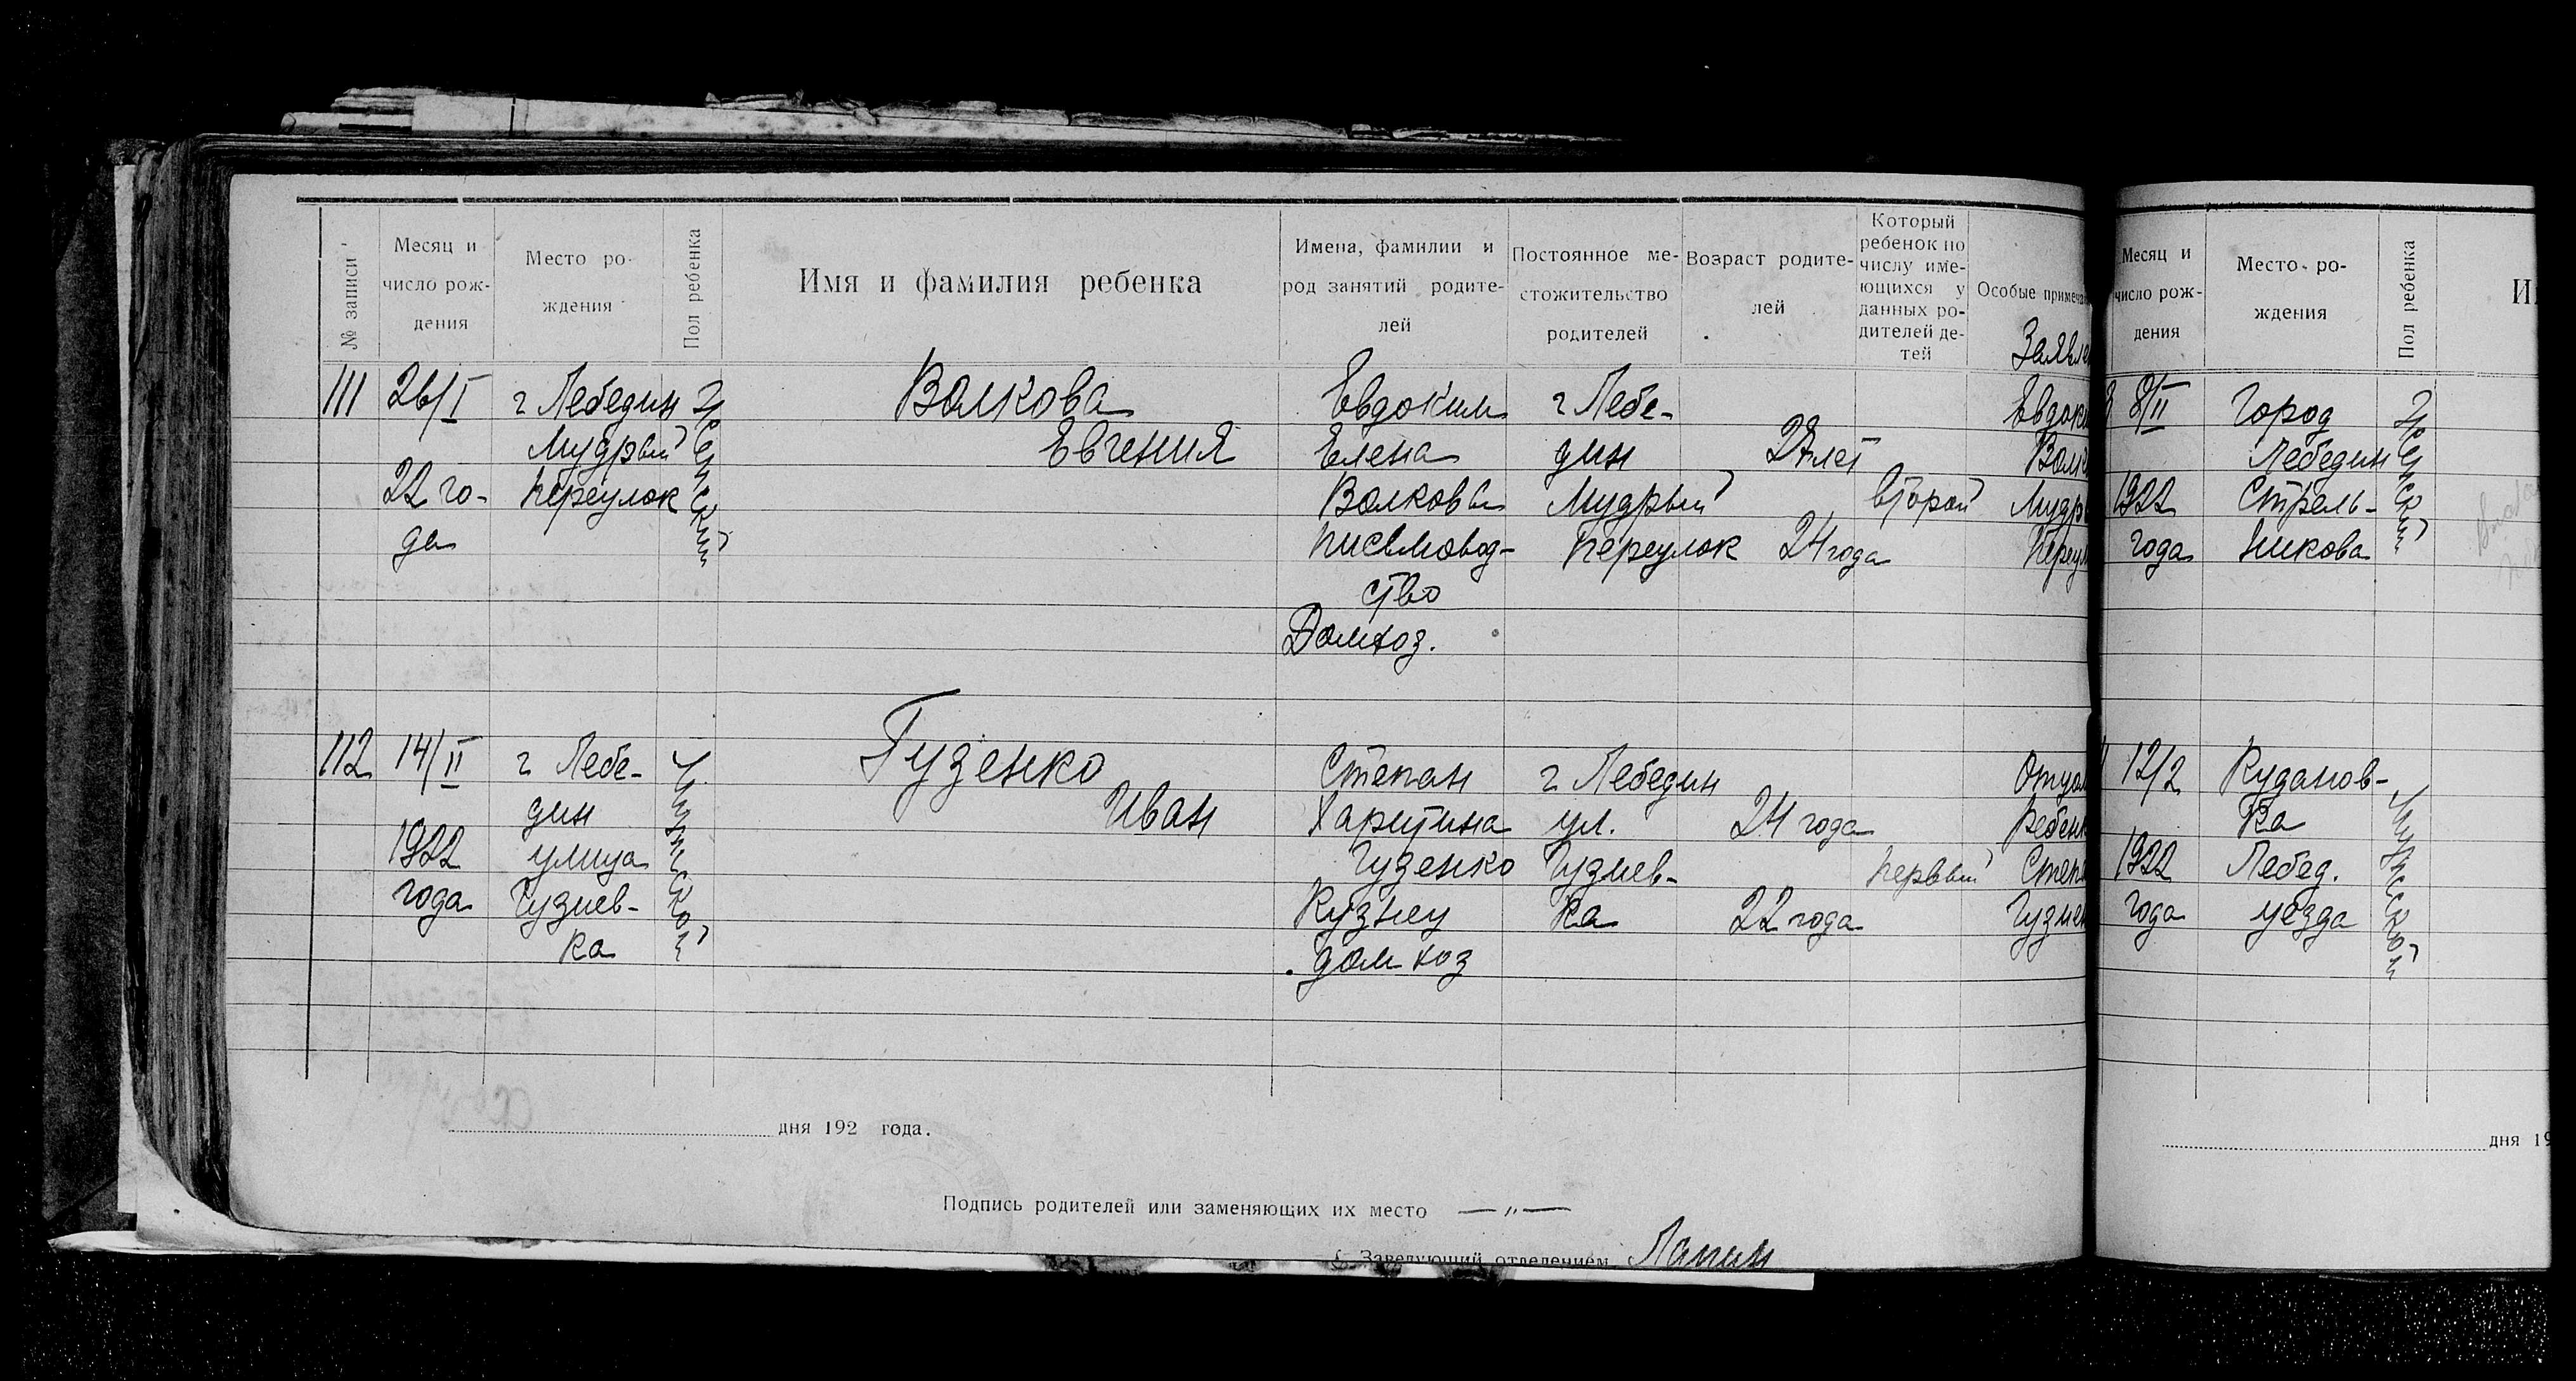 № записи
Месяц и число рождения
Место рождения
Пол ребенка
Имя и фамилия ребенка
Имена, фамилии и род занятий родителей
Постоянное местожительство родителей
Возраст родителей
Который ребенок по числу имеющихся у данных родителей детей
Особые примеча
Заявле
111
26/I
22 го-
да
г Лебедин
Мудрый
переулок
Женский
Волкова
Евгения
Евдоким
Елена
Волковы
письмовод-
ство
Домхоз.
г Лебе-
дин
Мудрый
переулок
лет
24 года
второй
Евдоки
Волк
Мудр
переул
112
14/II
1922
года
г Лебе-
дин
улица
Гузиев-
ка
Мужской
Гузенко
Иван
Степан
Харитина
Гузенко
Кузнец
дом хоз
г Лебедин
ул.
Гузиев-
ка
24 года
22 года
первый
Отцом
Ребенк
Степа
дня 192 года.
Подпись родителей или заменяющих их место — „ —
Заведующий отделением
Месяц и число рождения
Место рождения
Пол ребенка
И
8/II
1922
года
Город
Лебедин
Стрель-
никова
Женский
12/2
1922
года
Кудановка
Лебед.
уезда
Мужской
дня 19